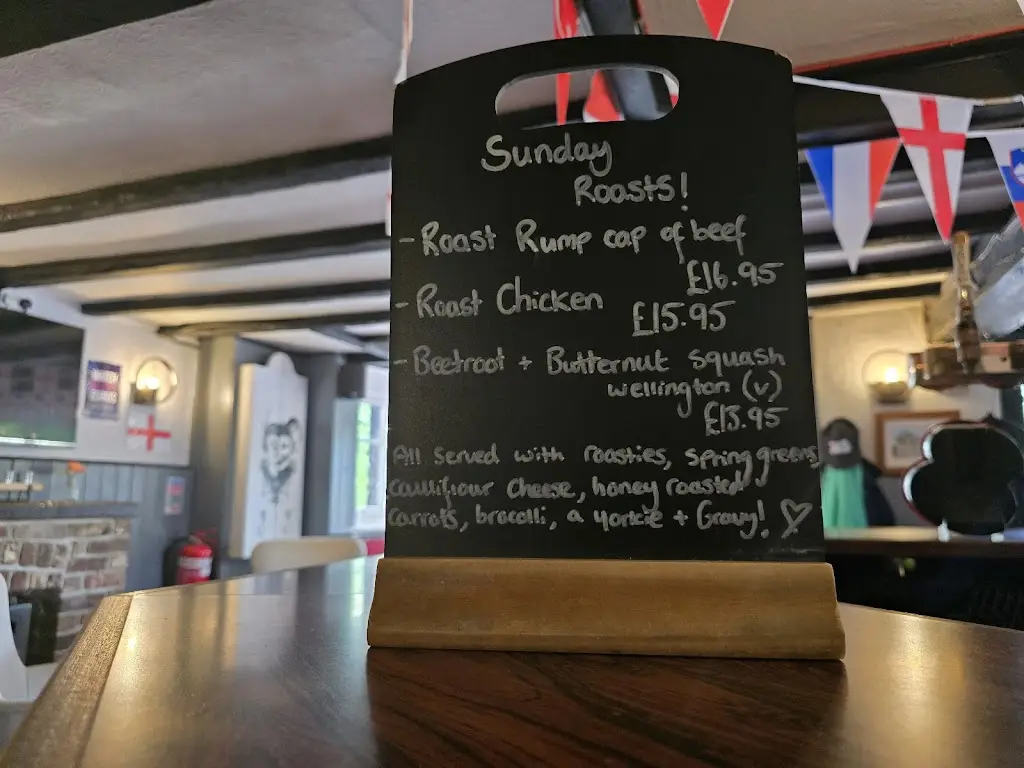 Sunday
Roasts!
- Roast Rump cap of beef
£16.95
- Roast Chicken
£15.95
- Beetroot + Butternut squash
wellington (v)
£13.95
All served with roasties, spring greens,
cauliflour cheese, honey roasted
carrots, brocolli, a yorkie + Gravy! ♡